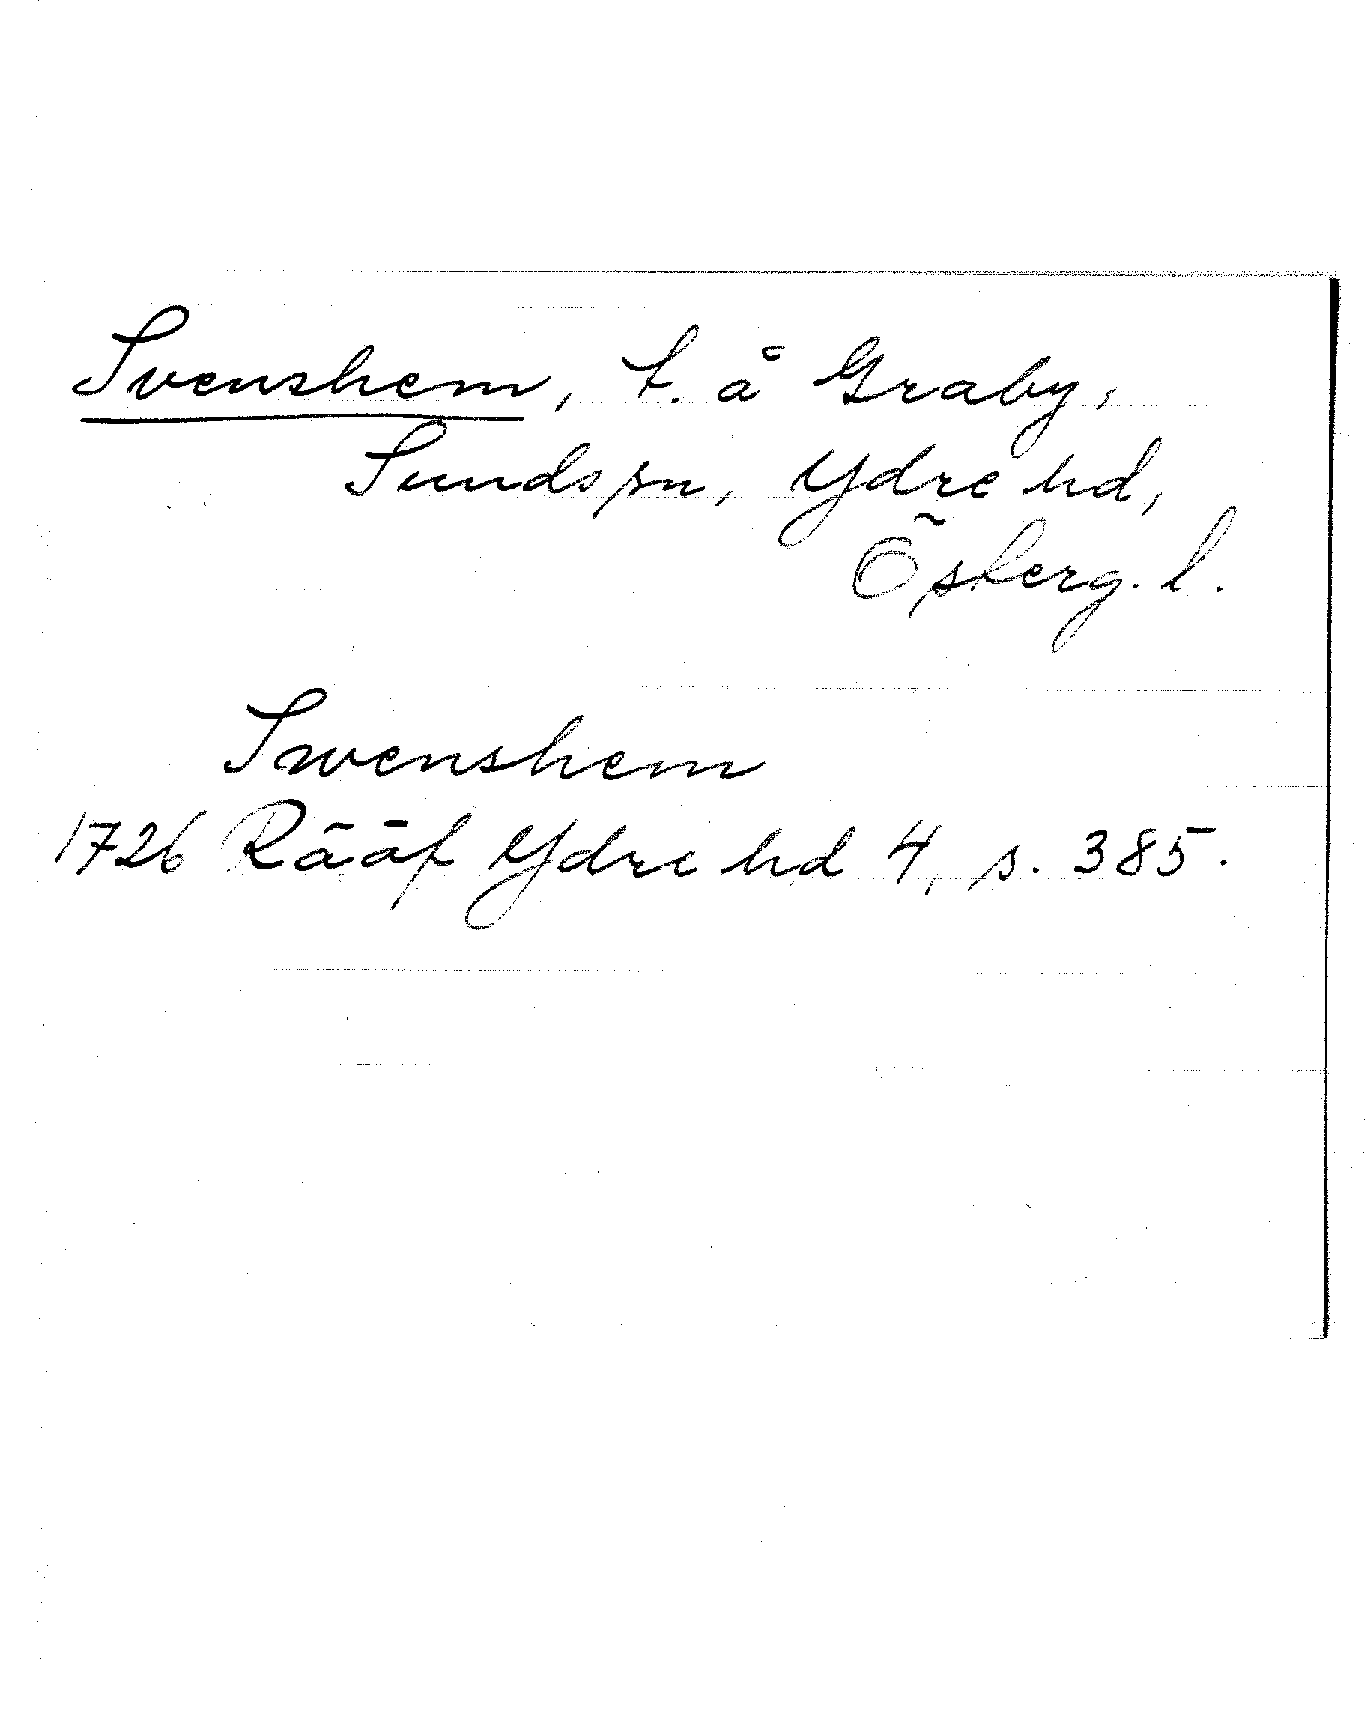 Svenshem, t. å Graby,
Sunds sn, Ydre hd,
Österg. l.
Swenshem
1726 Rääf Ydre hd 4, s. 385.